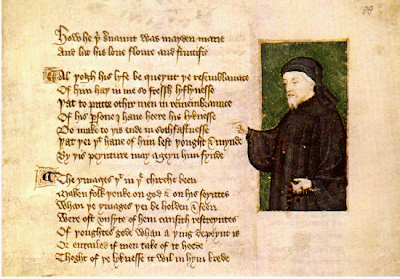 How he þͥ seruaunt was mayden marie
And lat his loue floure and fructifie
Al þogh his lyfe be queynt þe resemblaunce
Of him haþ in me so fressh lyflynesse
Þat to putte othir men in remembraunce
Of his persone I haue heere his lyknesse
Do make to þis ende in sothfastnesse
Þat þei þͭ haue of him lest þought & mynde
By þis peynture may ageyn him fynde
The ymages þͭ in þe chirche been
Maken folk þenke on god & on his seyntes
Whan þe ymages þei beholden & seen
Were oft vnsyte of hem causith restreyntes
Of þoughtes gode whan a þing depeynt is
Or entailed if men take of it heede
Thoght of þe lyknesse it wil in hym brede